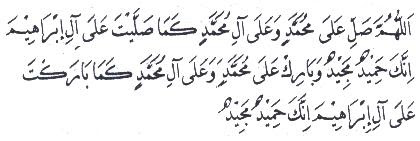 اَللّٰهُمَّ صَلِّ عَلَى مُحَمَّدٍ وَعَلَى آلِ مُحَمَّدٍ كَمَا صَلَّيْتَ عَلَى آلِ إِبْرَاهِيْمَ
اِنَّكَ حَمِيْدٌ مَجِيْدٌ وَبَارِكْ عَلَى مُحَمَّدٍ وَعَلَى آلِ مُحَمَّدٍ كَمَا بَارَكْتَ
عَلَى آلِ إِبْرَاهِيْمَ اِنَّكَ حَمِيْدٌ مَجِيْدٌ